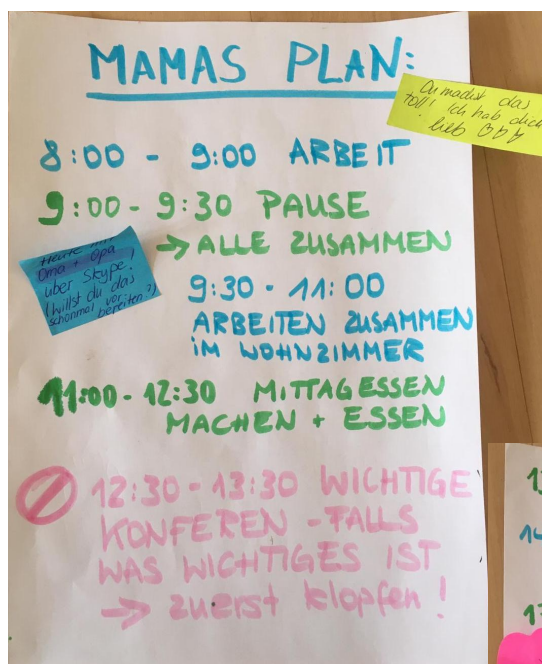 MAMAS PLAN:
Du machst das
toll! Ich hab dich
lieb
8:00 - 9:00 ARBEIT
9:00 - 9:30 PAUSE
→ ALLE ZUSAMMEN
Heute mit
Oma + Opa
über Skype!
(willst du das
schonmal vor-
bereiten?)
9:30 - 11:00
ARBEITEN ZUSAMMEN
IM WOHNZIMMER
11:00 - 12:30 MITTAGESSEN
MACHEN + ESSEN
12:30 - 13:30 WICHTIGE
KONFEREN - FALLS
WAS WICHTIGES IST
→ zuerst klopfen!